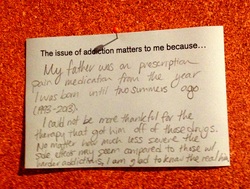 The issue of addiction matters to me because...
My father was on prescription
pain medication from the year
I was born until two summers ago
(1993-2013).
I could not be more thankful for the
therapy that got him off of these drugs.
No matter how much less severe the
side effects may seem compared to those w/
harder addictions, I am glad to know the real him.